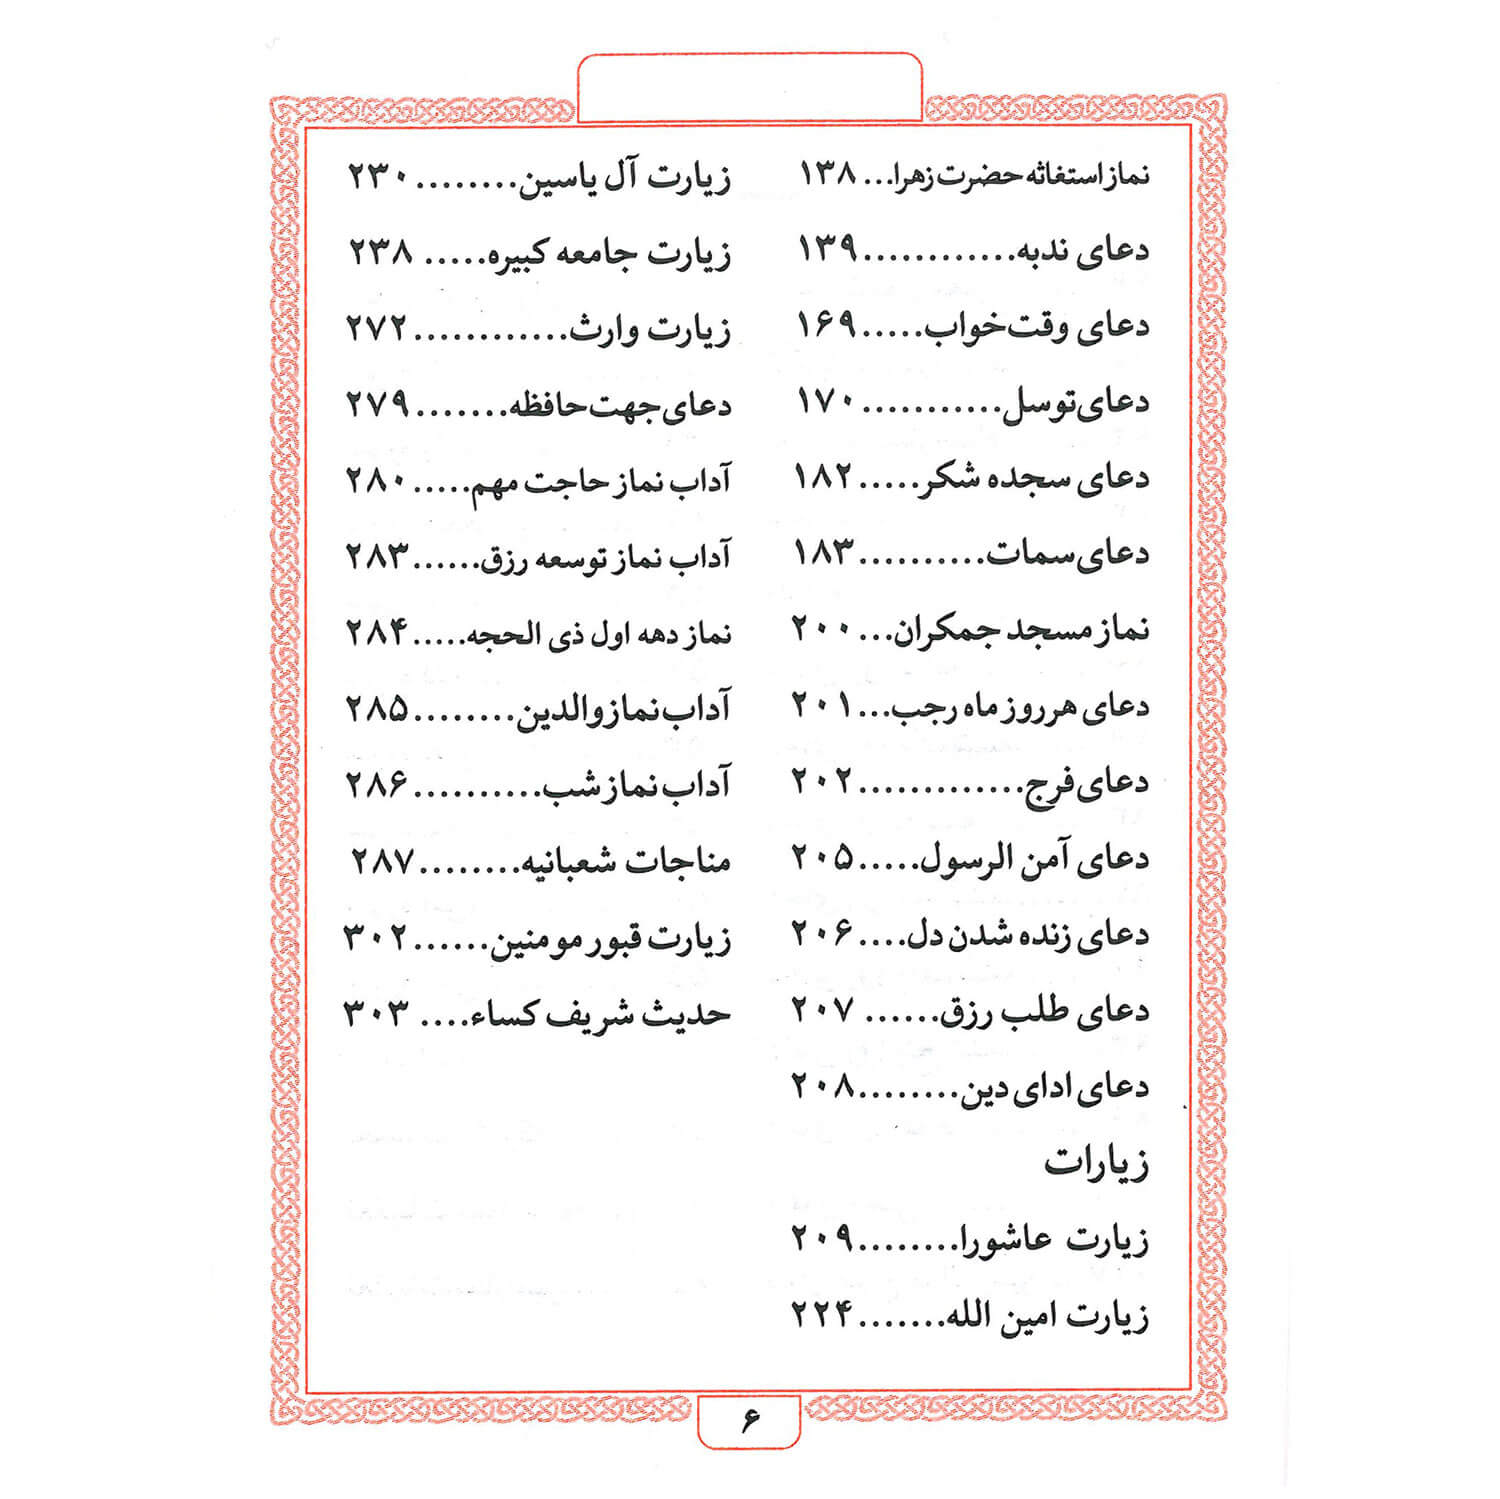 نماز استغاثه حضرت زهرا... ۱۳۸
دعای ندبه............۱۳۹
دعای وقت خواب.....۱۶۹
دعای توسل...........۱۷۰
دعای سجده شکر.....۱۸۲
دعای سمات..........۱۸۳
نماز مسجد جمکران...۲۰۰
دعای هر روز ماه رجب...۲۰۱
دعای فرج.............۲۰۲
دعای آمن الرسول.....۲۰۵
دعای زنده شدن دل....۲۰۶
دعای طلب رزق...... ۲۰۷
دعای ادای دین........۲۰۸
زیارات
زیارت عاشورا........۲۰۹
زیارت امین الله.......۲۲۴
زیارت آل یاسین........۲۳۰
زیارت جامعه کبیره..... ۲۳۸
زیارت وارث............۲۷۲
دعای جهت حافظه.......۲۷۹
آداب نماز حاجت مهم.....۲۸۰
آداب نماز توسعه رزق......۲۸۳
نماز دهه اول ذی الحجه.....۲۸۴
آداب نماز والدین........۲۸۵
آداب نماز شب..........۲۸۶
مناجات شعبانیه........۲۸۷
زیارت قبور مومنین......۳۰۲
حدیث شریف کساء.... ۳۰۳
۶